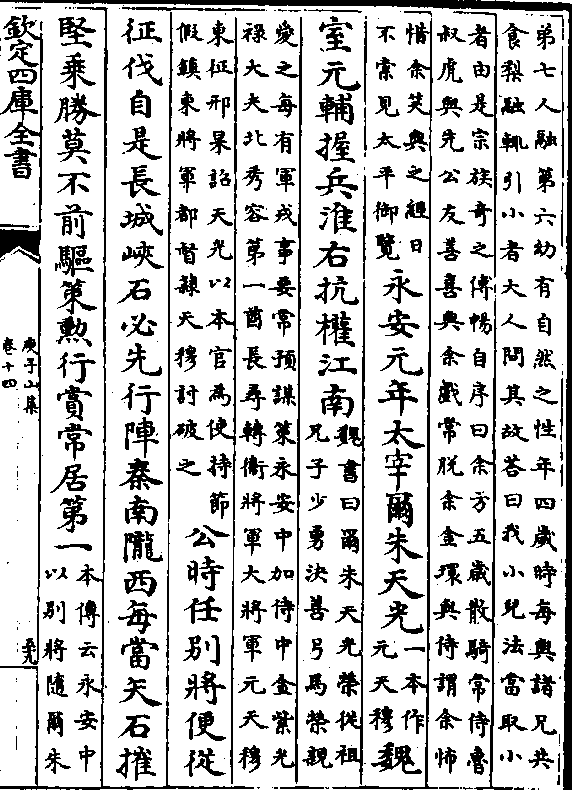 弟七人融第六幼有自然之性年四歲時每與諸兄共
食梨融輒引小者大人問其故答曰我小兒法當取小
者由是宗族奇之傅暢自序曰余方五歲散騎常侍魯
叔虎與先公友善喜與余戲常脫余金環與侍謂余怖
惜余笑與之經日
不索見太平御覽
永安元年太宰爾朱天光
一本作
元天穆
魏
室元輔握兵淮右抗權江南
魏書曰爾朱天光榮從祖
兄子少勇決善弓馬榮親
愛之每有軍戎事要常預謀策永安中加侍中金紫光
祿大夫北秀容第一酋長尋轉衛將軍大將軍元天穆
東征邢杲詔天光以本官為使持節
假鎮東將軍都督隸天穆討破之
公時任别將便從
征伐自是長城峽石必先行陣秦南隴西每當矢石摧
堅乘勝莫不前驅策勲行賞常居第一
本傳云永安中
以别將隨爾朱
欽定四庫全書
庾子山集
卷十四